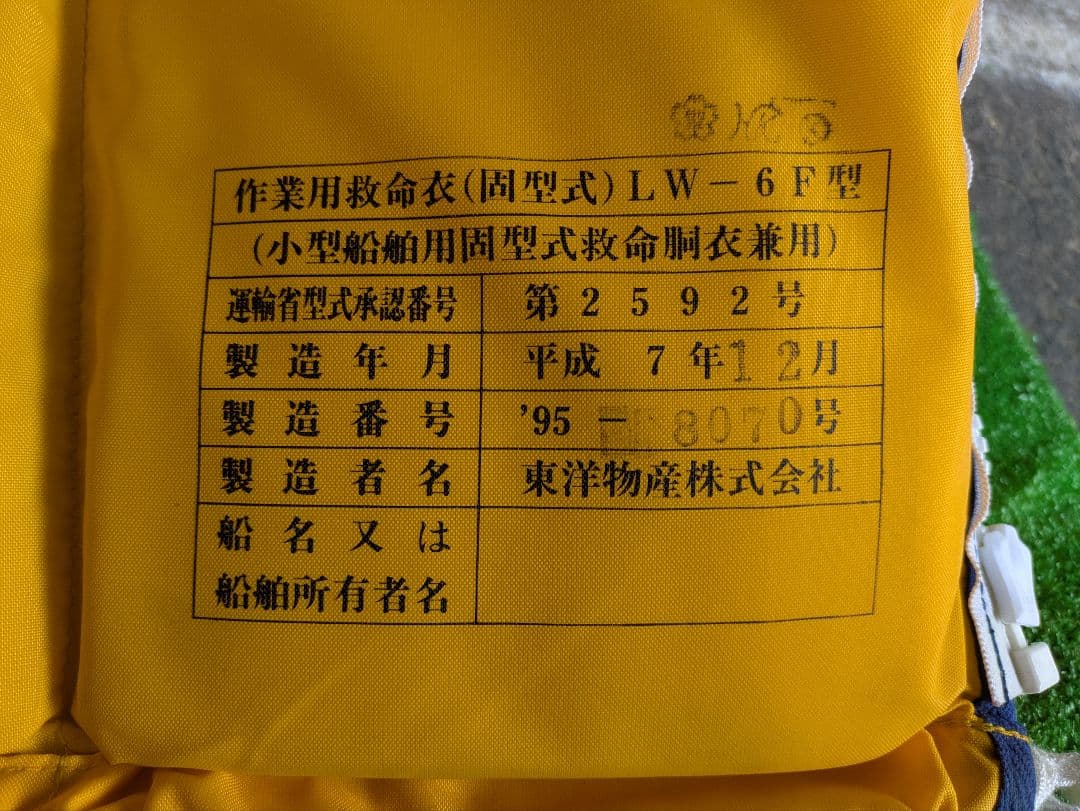 作業用救命衣(固型式)LW－6F型
(小型船舶用固型式救命胴衣兼用)
運輸省型式承認番号 第2592号
製造年月 平成7年12月
製造番号 '95－8070号
製造者名 東洋物産株式会社
船名又は
船舶所有者名